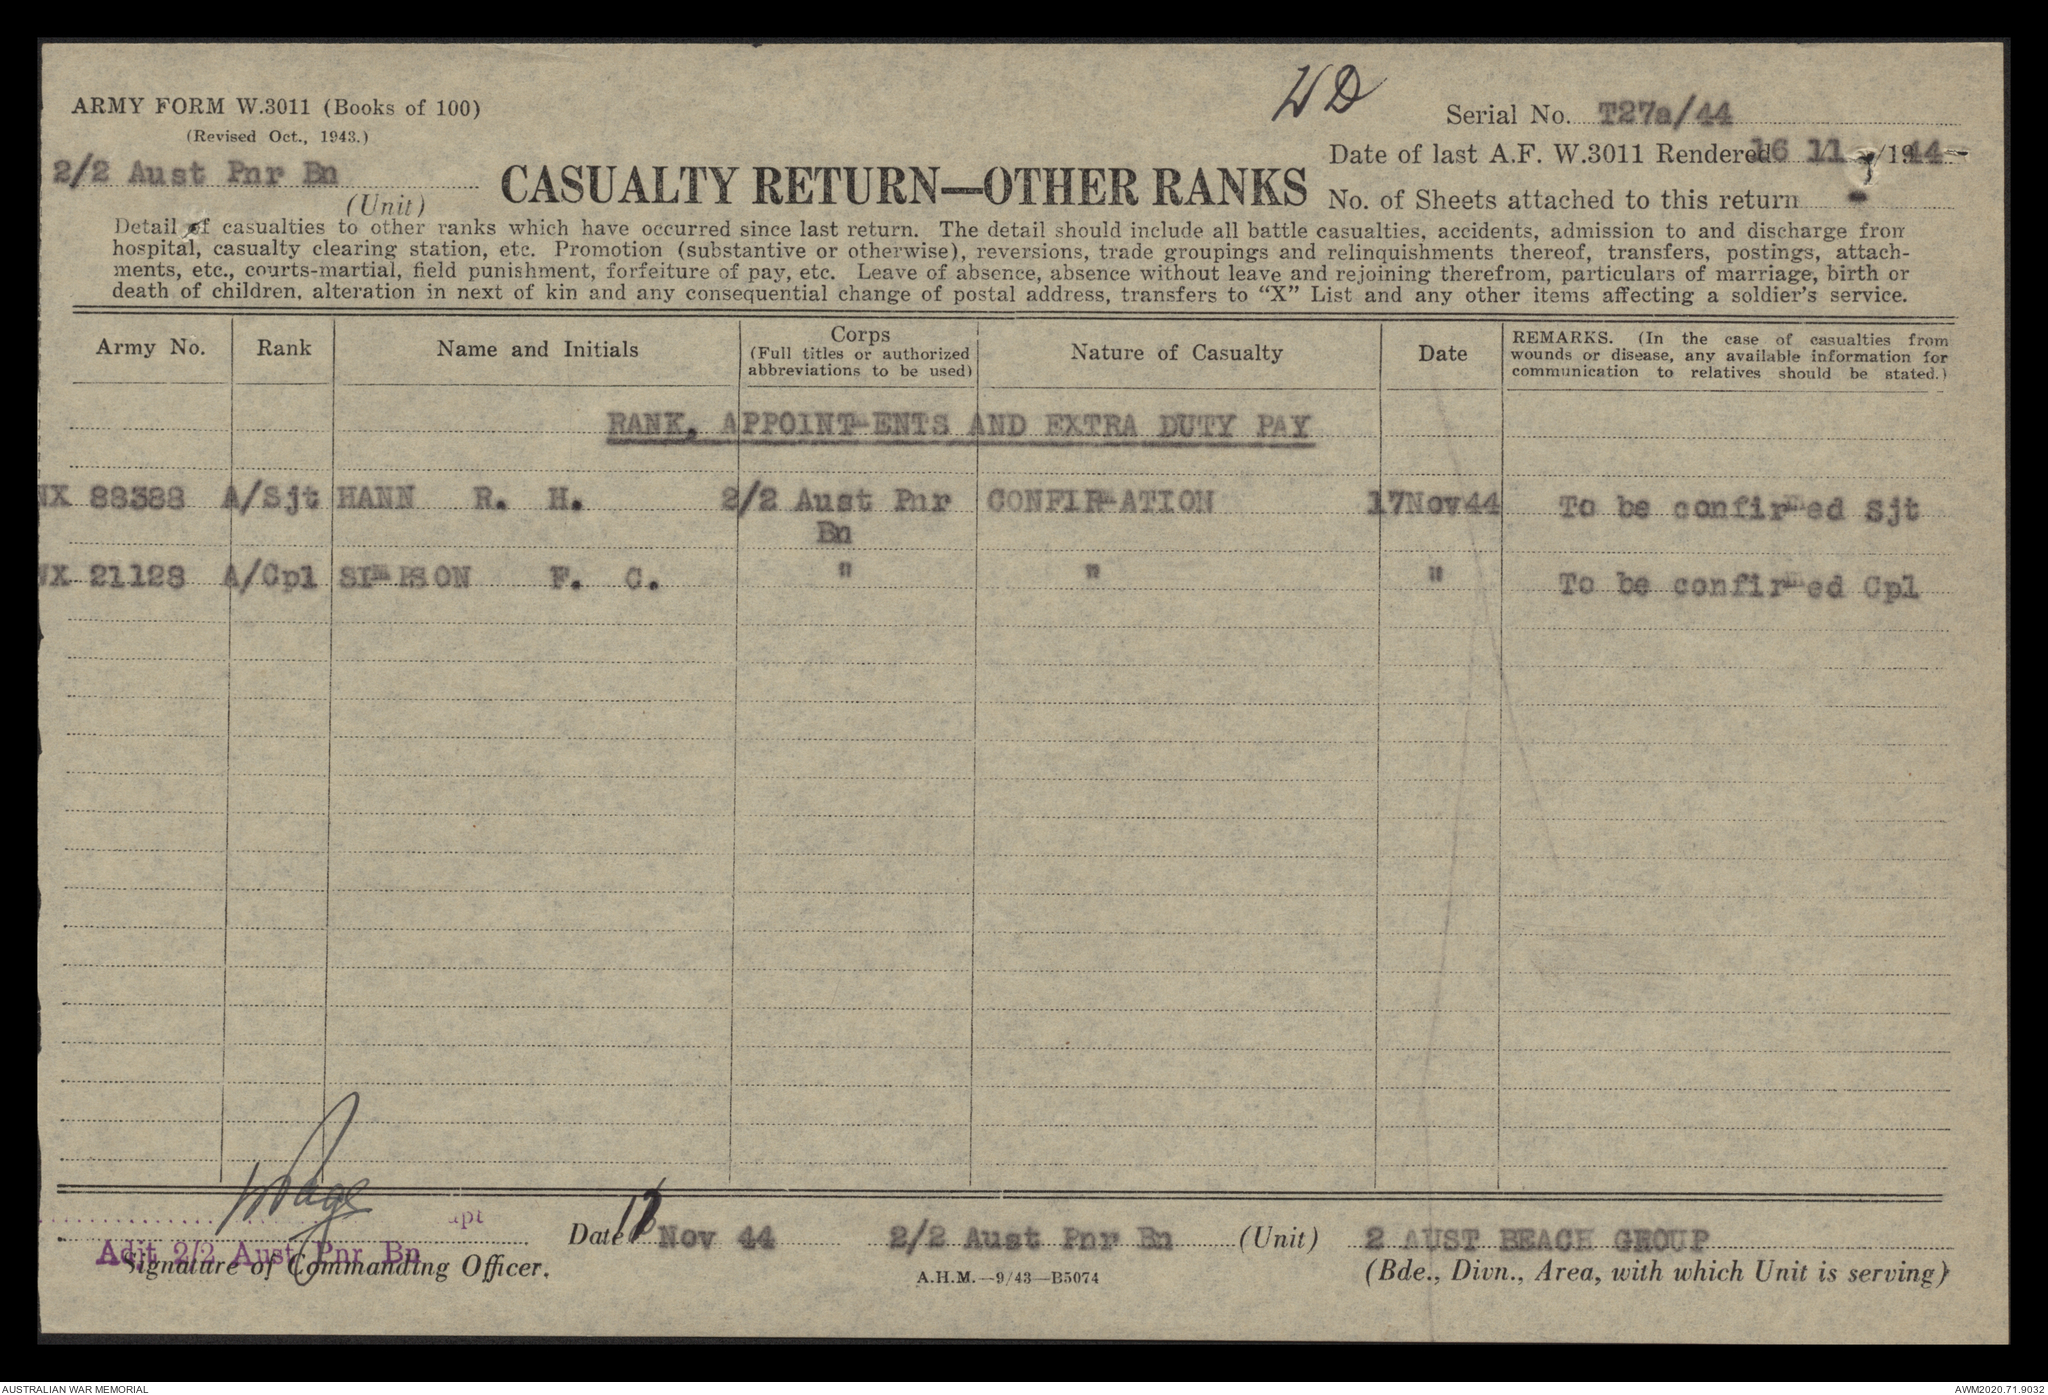 WD
ARMY FORM W.3011 (Books of 100)
(Revised Oct., 1943.)
Serial No. T27a/44
Date of last A.F. W.3011 Rendered 16 11 /1944
2/2 Aust Pnr Bn
(Unit)
CASUALTY RETURN—OTHER RANKS
No. of Sheets attached to this return -
Detail of casualties to other ranks which have occurred since last return. The detail should include all battle casualties, accidents, admission to and discharge from
hospital, casualty clearing station, etc. Promotion (substantive or otherwise), reversions, trade groupings and relinquishments thereof, transfers, postings, attach-
ments, etc., courts-martial, field punishment, forfeiture of pay, etc. Leave of absence, absence without leave and rejoining therefrom, particulars of marriage, birth or
death of children, alteration in next of kin and any consequential change of postal address, transfers to “X” List and any other items affecting a soldier’s service.
Army No. Rank Name and Initials Corps (Full titles or authorized abbreviations to be used) Nature of Casualty Date REMARKS. (In the case of casualties from wounds or disease, any available information for communication to relatives should be stated.)
RANK, APPOINTMENTS AND EXTRA DUTY PAY
NX 88388 A/Sjt HANN R. H. 2/2 Aust Pnr Bn CONFIRMATION 17Nov44 To be confirmed Sjt
X 21128 A/Cpl SIMPSON F. C. " " " To be confirmed Cpl
WPage
apt
Adjt 2/2 Aust Pnr Bn
Signature of Commanding Officer.
Date 17 Nov 44
2/2 Aust Pnr Bn (Unit)
2 AUST BEACH GROUP
A.H.M.—9/43—B5074
(Bde., Divn., Area, with which Unit is serving)
AUSTRALIAN WAR MEMORIAL
AWM2020.71.9032